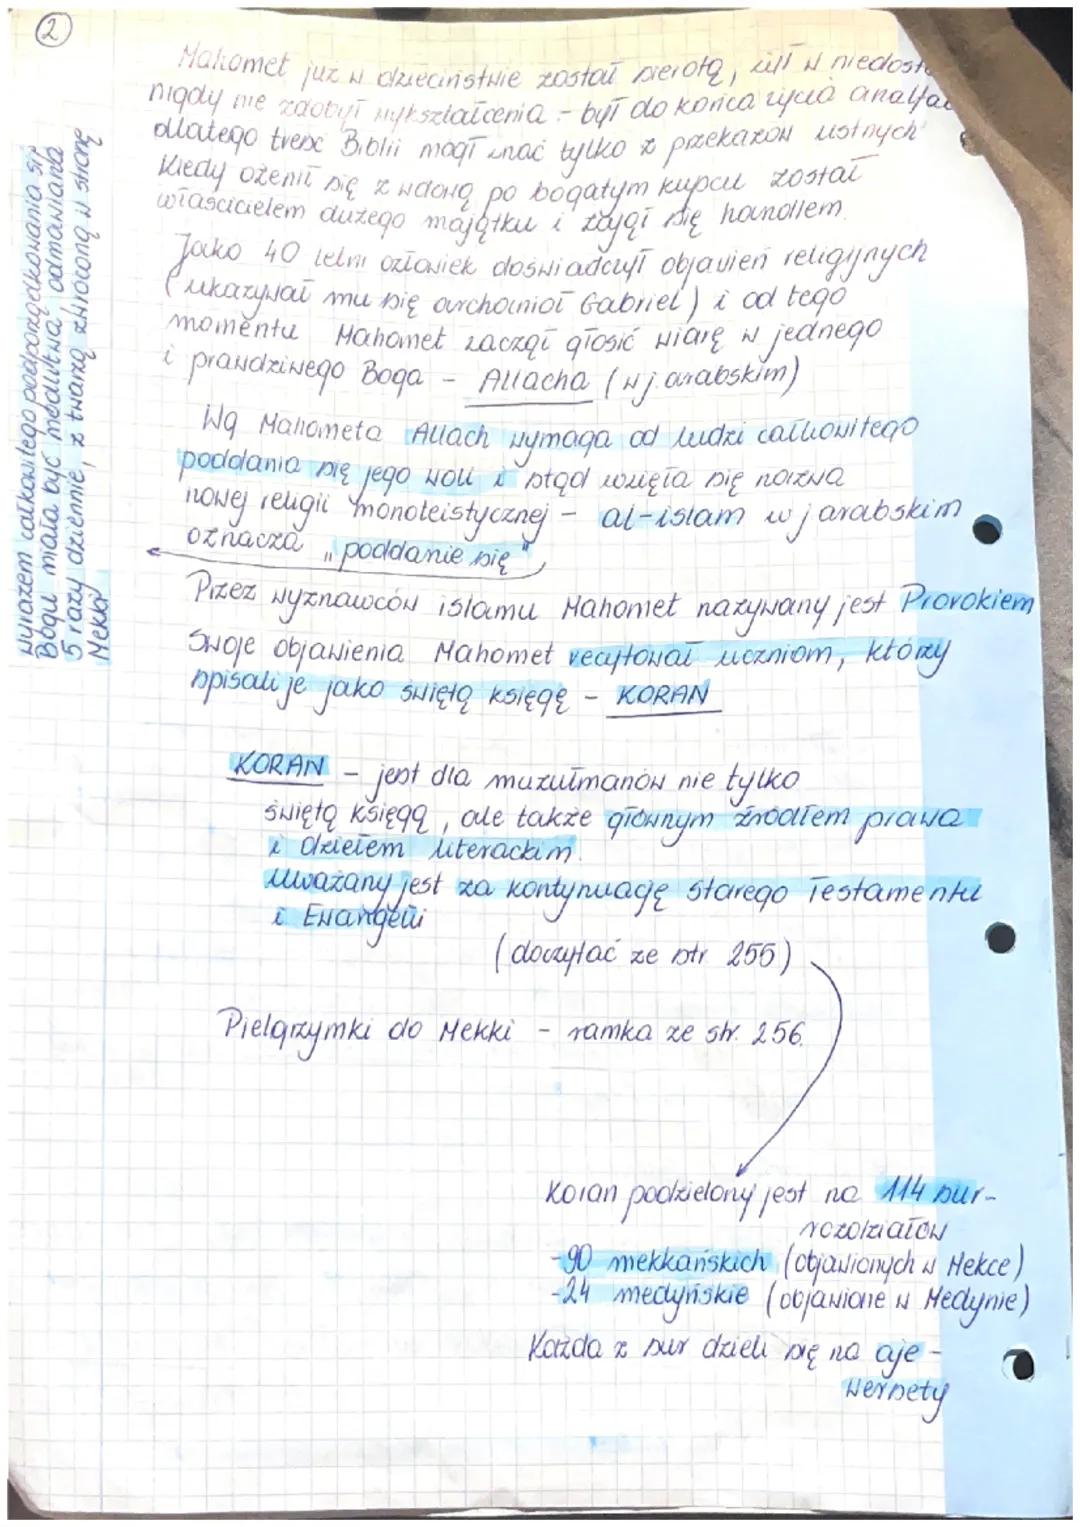 2
Mahomet już w dzieciństwie został sierotą, żył w
nigdy nie zdobył wykształcenia - był do końca życia
dlatego treść Biblii mógł znać tylko z przekazów ustnych
Kiedy ożenił się z wdową po bogatym kupcu został
właścicielem dużego majątku i zajął się handlem.
Jako 40 letni człowiek doświadczył objawień religijnych
(ukazywał mu się archanioł Gabriel) i od tego
momentu Mahomet zaczął głosić wiarę w jednego
i prawdziwego Boga - Allacha (w j. arabskim)
Wg Mahometa Allach wymaga od ludzi całkowitego
poddania się jego woli i stąd wzięła się nazwa
nowej religii monoteistycznej - al-islam w j arabskim
oznacza „poddanie się"
Przez wyznawców islamu Mahomet nazywany jest Prorokiem
Swoje objawienia Mahomet recytował uczniom, którzy
spisali je jako świętą księgę - KORAN
KORAN - jest dla muzułmanów nie tylko
świętą księgą, ale także głównym źródłem prawa
i dziełem literackim.
Uważany jest za kontynuację Starego Testamentu
i Ewangelii
(doczytać ze str 255)
Pielgrzymki do Mekki - ramka ze str. 256.
Koran podzielony jest na 114 sur -
rozdziałów
- 90 mekkańskich (objawionych w Mekce)
- 24 medyńskie (objawione w Medynie)
Każda z sur dzieli się na aje -
wersety
wyrazem całkowitego podporządkowania się
Bogu miała być modlitwa, odmawiana
5 razy dziennie, z twarzą zwróconą w stronę
Mekki